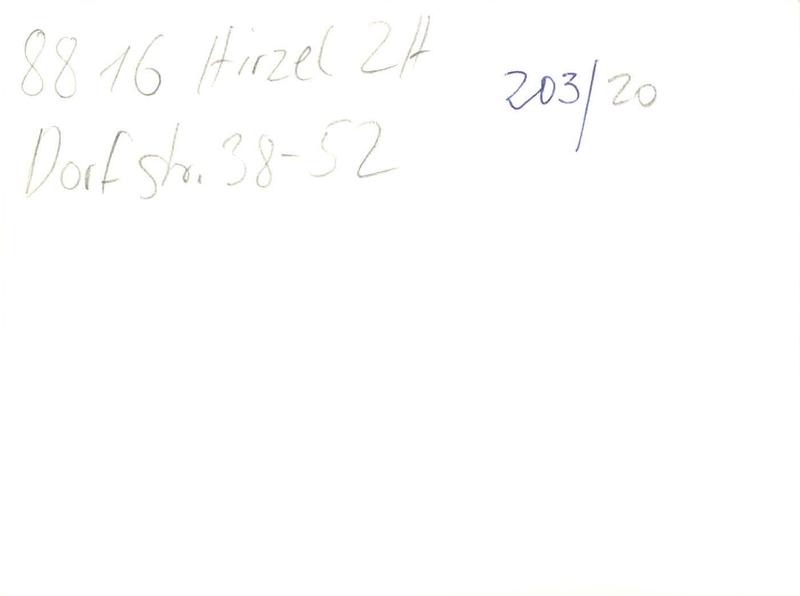 8816 Hirzel ZH
203/20
Dorfstr. 38-52